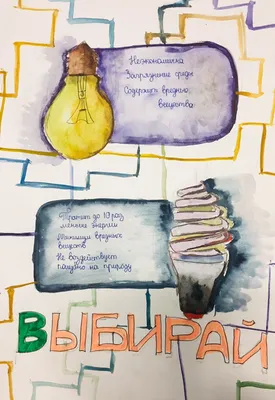 Неэкономична
Загрязнение среды
Содержит вредные
вещества
Тратит до 10 раз
меньше энергии
вредных
веществ
Не воздействует
пагубно на природу
ВЫБИРАЙ